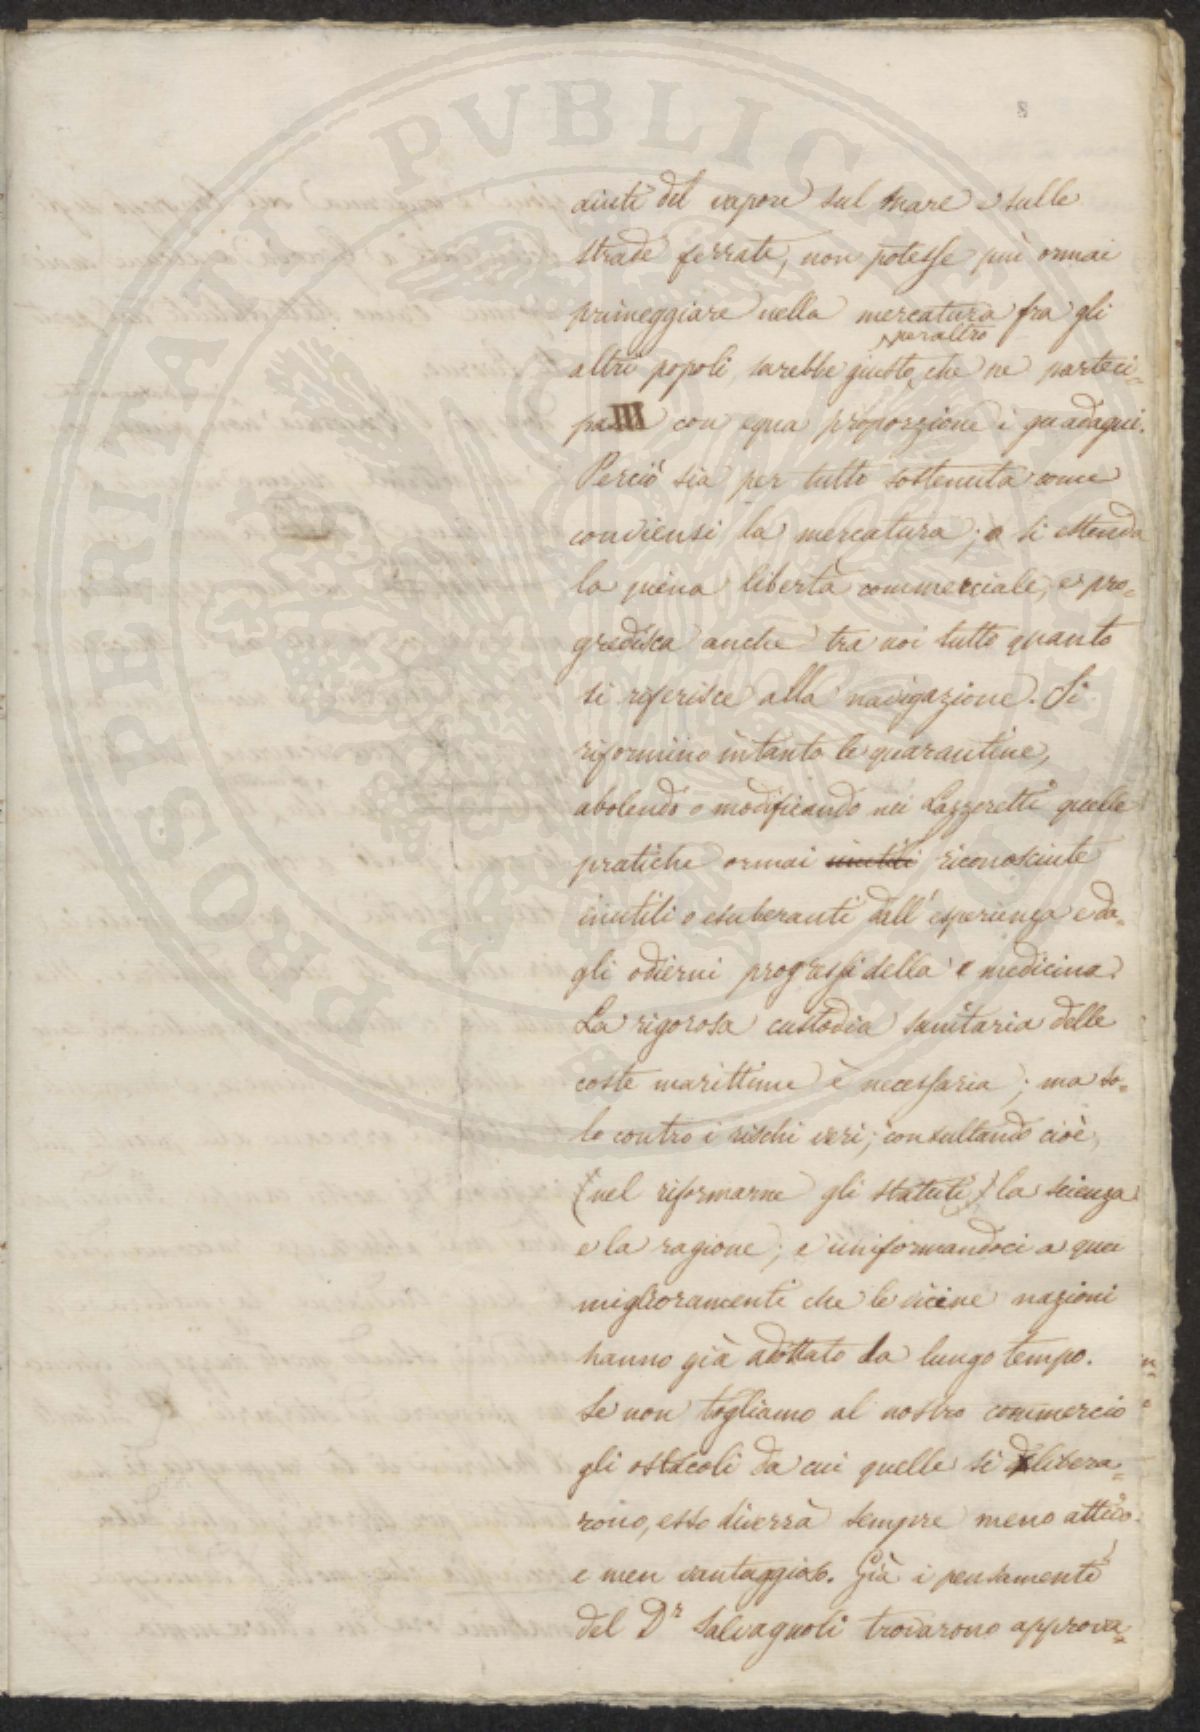 8
aiuti del vapore sul mare e sulle
strade ferrate, non potesse più ormai
primeggiare nella mercatura fra gli
peraltro
altri popoli, sarebbe giusto che ne parteci=
pa con equa proporzione i guadagni.
Perciò sia per tutto sostenuta come
conviensi la mercatura; e si estenda
la piena libertà commerciale, e pro=
gredisca anche tra noi tutto quanto
si riferisce alla navigazione. Si
riformino intanto le quarantine,
abolendo o modificando nei Lazzeretti quelle
pratiche ormai inutili riconosciute
inutili o esuberanti dall'esperienza e da=
gli odierni progressi della medicina.
La rigorosa custodia sanitaria delle
coste marittime è necessaria; ma so=
lo contro i rischi veri; consultando cioè,
(nel riformarne gli statuti) la scienza
e la ragione; e uniformandoci a quei
miglioramenti che le vicine nazioni
hanno già adottato da lungo tempo.
Se non togliamo al nostro commercio
gli ostacoli da cui quelle si libera=
rono, esso diverrà sempre meno attivo
e men vantaggioso. Già i pensamenti
del Dr Salvagnoli trovarono approva=
PROSPERITATI PVBLICAE